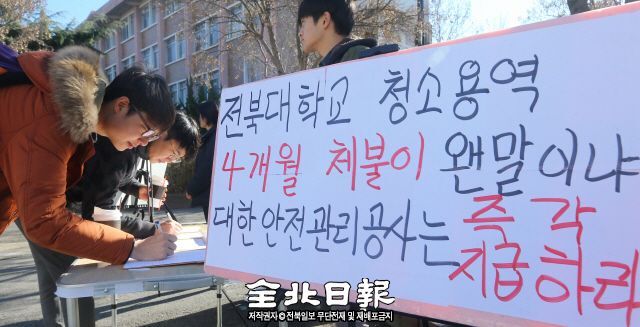 전북대학교 청소용역
4개월 체불이 왠말이냐
대한안전관리공사는 즉각
지급하라
全北日報
저작권자 © 전북일보 무단전재 및 재배포금지